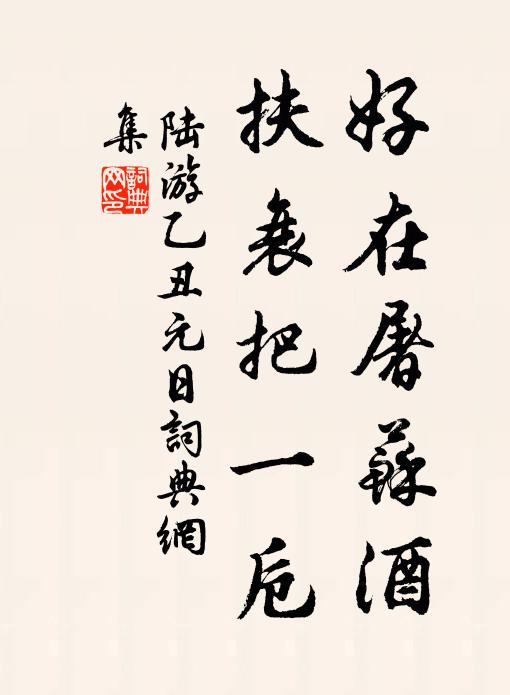 好在屠蘇酒
扶衰把一卮
陸游乙丑元日詞典網
集
詞典
网印